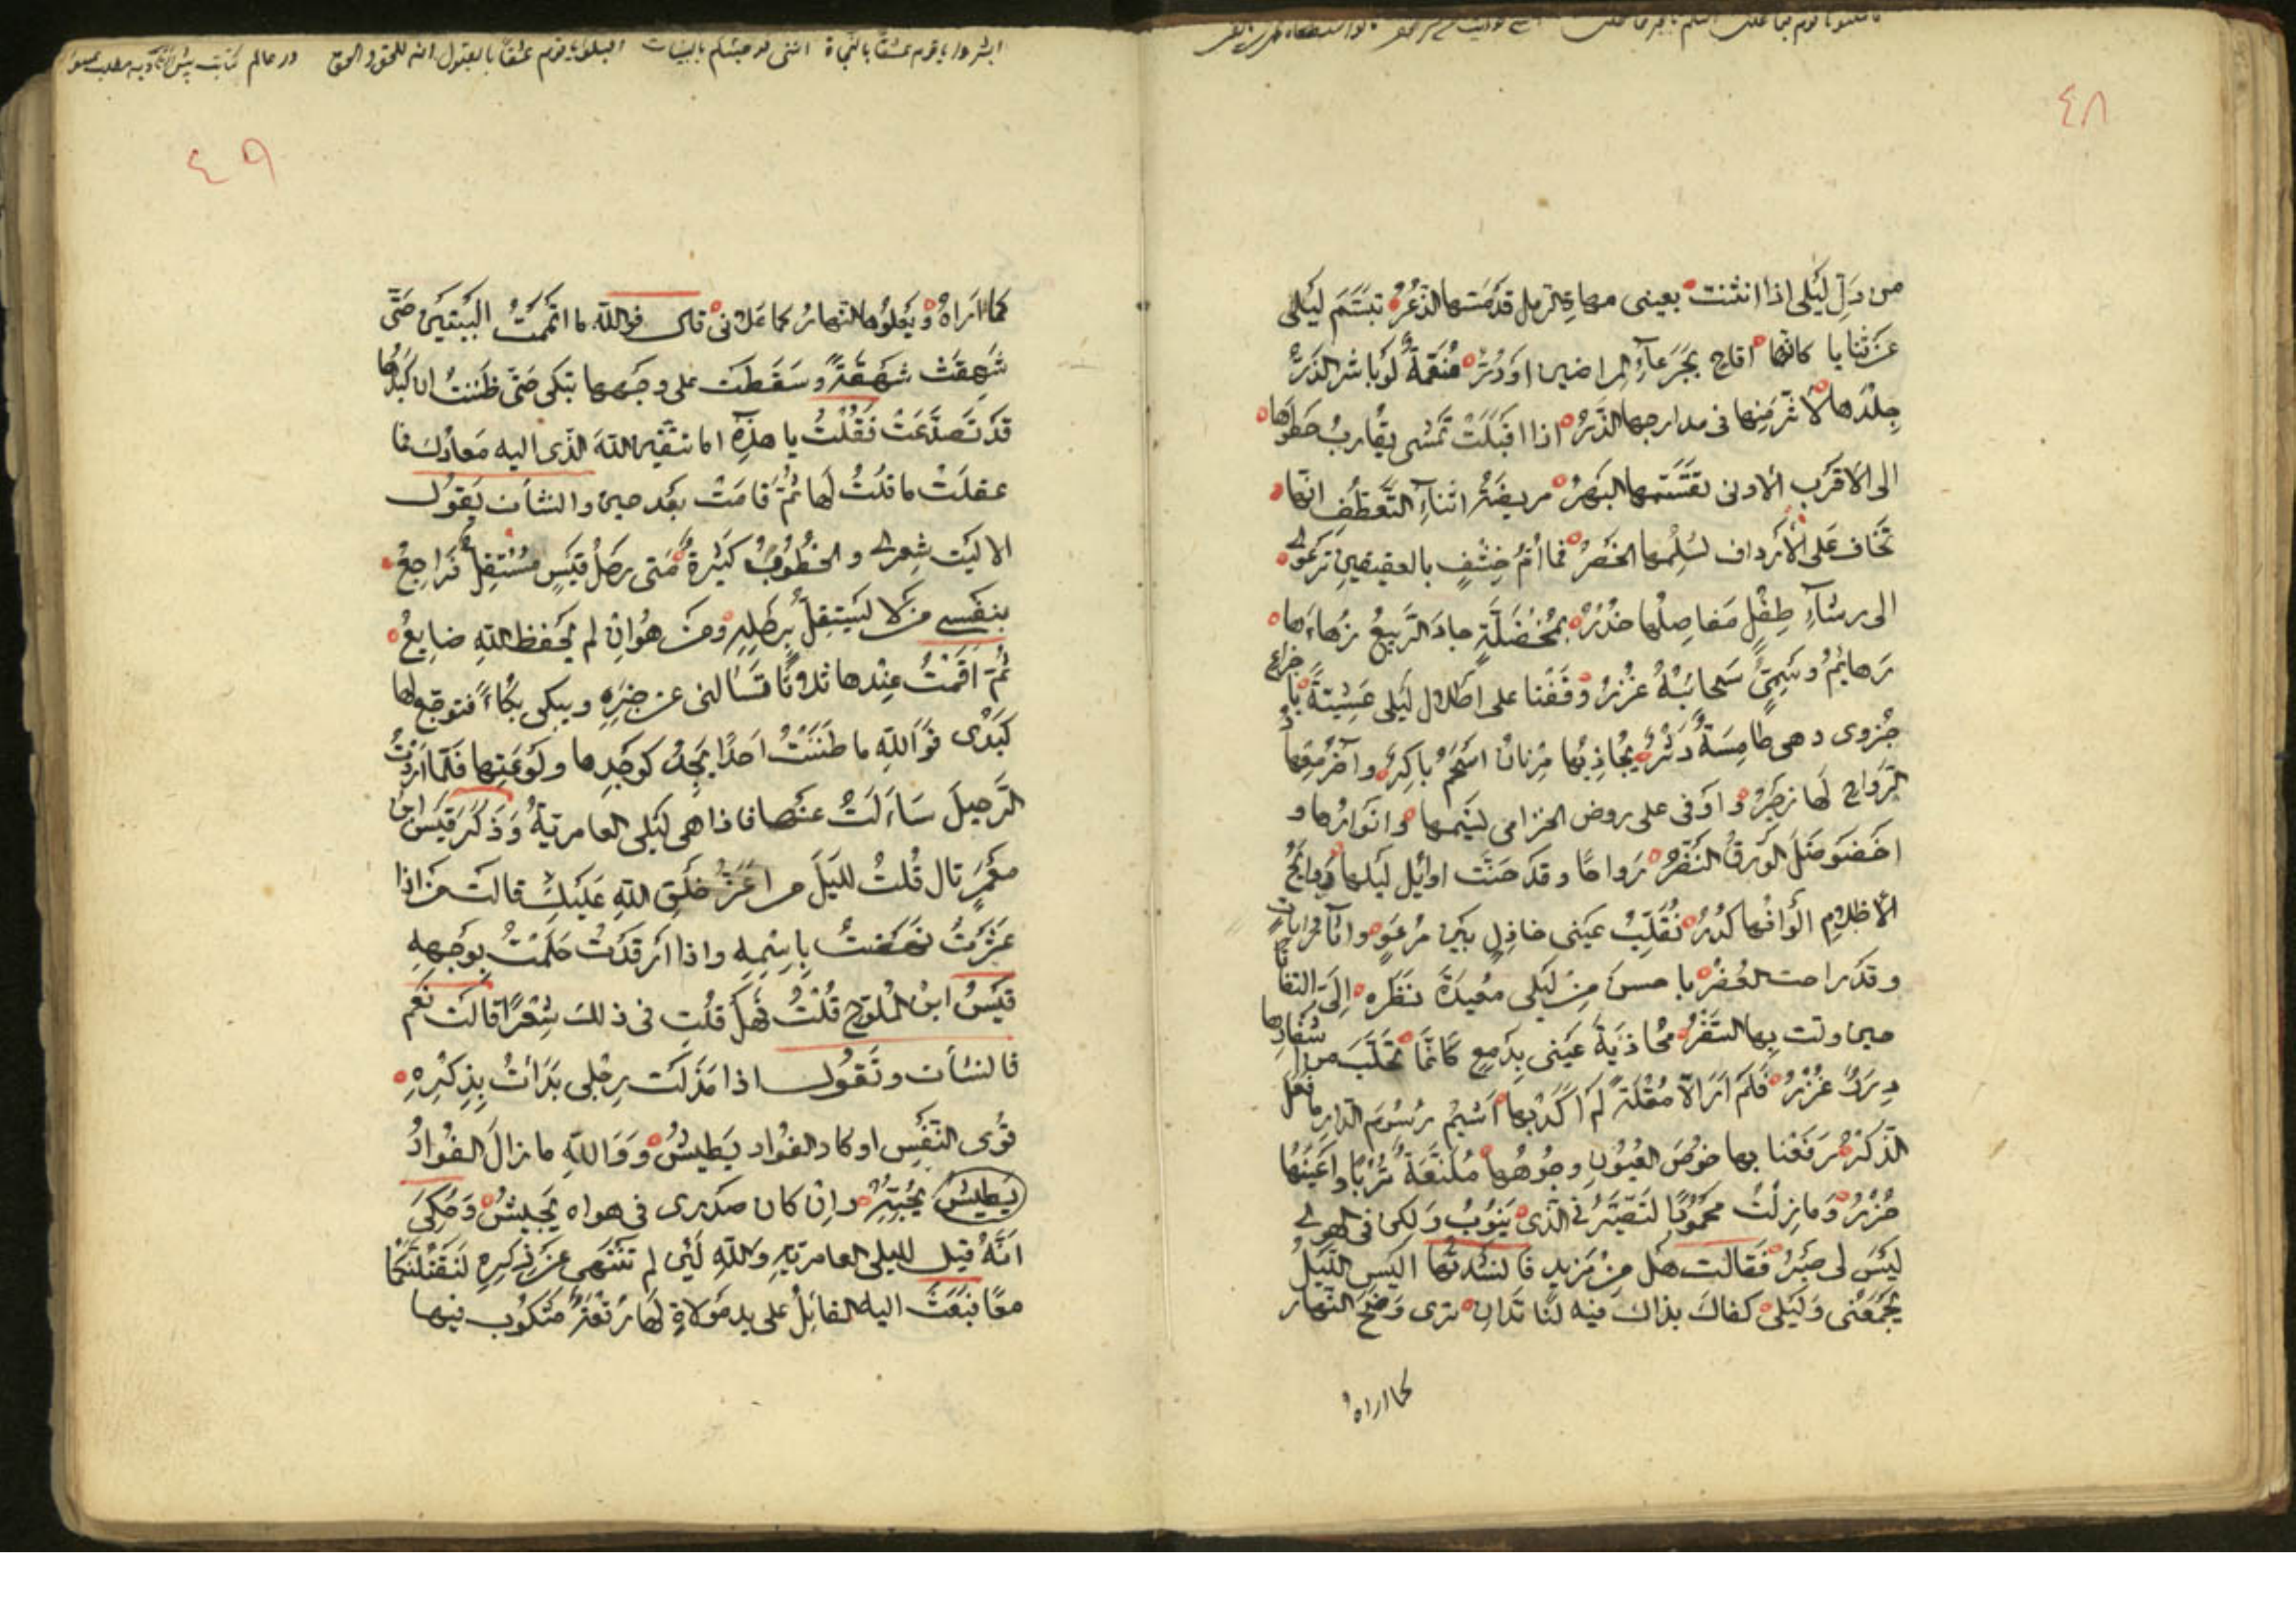 ٤٨
من دلّ ليلى اذا انثنت بعينى مهاة الرمل قد مسّها الذعر تبسّم ليلى
عن ثنايا كانّها اقاح بجرعآء المراضين او درّ منعّمة لو باشر الذرّ
جلدها لأثّر منها فى مدارجها الذّر اذا اقبلت تمشى يقارب خطوها
الى الاقرب الادنى تقسّمها البهر مريضة اثناء التعطّف انّها
تخاف على الأرداف لثلمها الخصر فما أمّ خشف بالعقيقين ترعوى
الى رشآء طفل مفاصلها خدر بمخضلّة جاد الربيع زهاءها
رهايم وسمىّ سحائبه غزر وقفنا على اطلال ليلى عشيّة باجراع
حزوى وهى طامسة دثر يجاذبها مزنان اسحم باكر وآخر معهاد
الرّواح لها زجر واوفى على روض الخزامى نسيمها وانوارها و
اخضوضل الورق النضر رواحا وقد حنّت اوائل ليلها روايح
الأظلام الوانها كدر تقلّب عينى خاذل بين مرعو واثآر ايات
وقد راحت العفر باحسن من ليلى معيدة نظره الىّ التفاتا
حين ولّت بها السّفر محاذية عينى بدمع كانّما تحلّب من اشفارها
درر غزر فلم ار الّا مقلة لم اكد بها اشيم رسوم الدار ما فعل
الذكر رفعنا بها خوص العيون وجوهها ملفّعة تربا واعينها
خزر وما زلت محمود التصبّر فى الّذى ينوب ولكن فى الهوى
ليس لى صبر فقالت هل من مزيد فانشدتها اليس الليل
يجمعنى وليلى كفاك بذاك فيه لنا تدان ترى وضح النهار
كما اراه
٤٩
كما اراه ويعلوها النهار كما علانى قال فوالله ما اتممت البيتين حتّى
شهقت شهقة وسقطت على وجهها تبكى حتّى ظننت ان كبدها
قد تصدّعت فقلت يا هذه اما تتّقين الله الّذى اليه معادك فما
عقلت ما قلت لها ثمّ قامت بعد حين وانشأت يقول
الا ليت شعرى والخطوب كثيرة متى رحل قيس مستقلّ فراجع
بنفسى من لا يستقلّ برحله ومن هو ان لم يحفظ الله ضايع
ثمّ اقمت عندها ثلاثا تسالنى عن خبره ويبكى بكاء فتوجع لها
كبدى فوالله ما ظننت احدا يجد كوجدها ولوعتها فلمّا اردت
الرّحيل ساءلت عنها فاذا هى ليلى العامريّة وذكر قيس ابن
معمر قال قلت لليل من اعزّ خلق الله عليك قالت من اذا
عثرت نهضت باسمه واذا ارقدت حلمت بوجهه
قيس ابن الملوّح قلت فهل قلت فى ذلك شعرا قالت نعم
فانشأت وتقول اذا مذلت رجلى بدأت بذكره
قوى النّفس او كاد الفواد يطيش ووالله ما زال الفواد
يطيش بحبّه وان كان صدرى فى هواه يجيش وحكى
انّه قيل لليلى العامريّه والله لئن لم تنتهى عن ذكره لنقتلنّكما
معا فبعث اليه القائل على يد مولاة لها رقعة مكتوب فيها